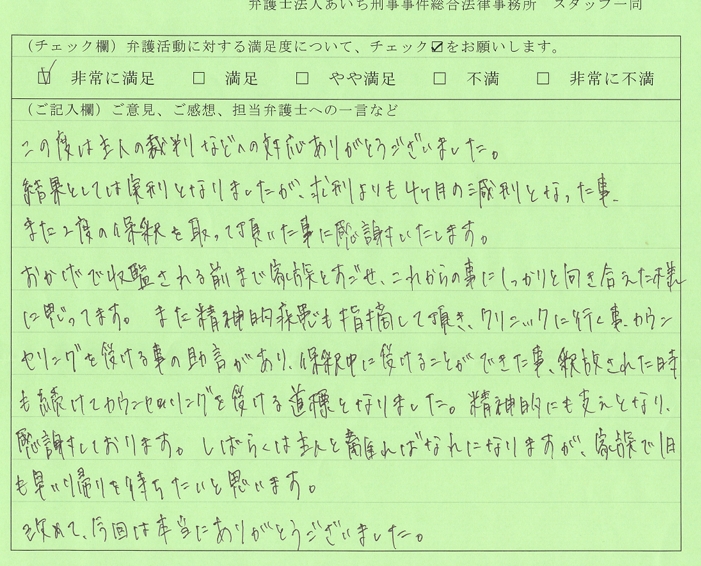 弁護士法人あいち刑事事件総合法律事務所　スタッフ一同
（チェック欄）弁護活動に対する満足度について、チェック☑をお願いします。
☑ 非常に満足　□ 満足　□ やや満足　□ 不満　□ 非常に不満
（ご記入欄）ご意見、ご感想、担当弁護士への一言など
この度は主人の裁判などへの対応ありがとうございました。
結果としては実刑となりましたが、求刑よりも4ヶ月の減刑となった事、
また2度の保釈を取って頂いた事に感謝いたします。
おかげで収監される前まで家族とすごせ、これからの事にしっかりと向き合えた様
に思ってます。また精神的疾患も指摘して頂き、クリニックに行く事、カウン
セリングを受ける事の助言があり、保釈中に受けることができた事、釈放された時
も続けてカウンセリングを受ける道標となりました。精神的にも支えとなり、
感謝しております。しばらくは主人と離ればなれになりますが、家族で1日
も早い帰りを待ちたいと思います。
改めて、今回は本当にありがとうございました。